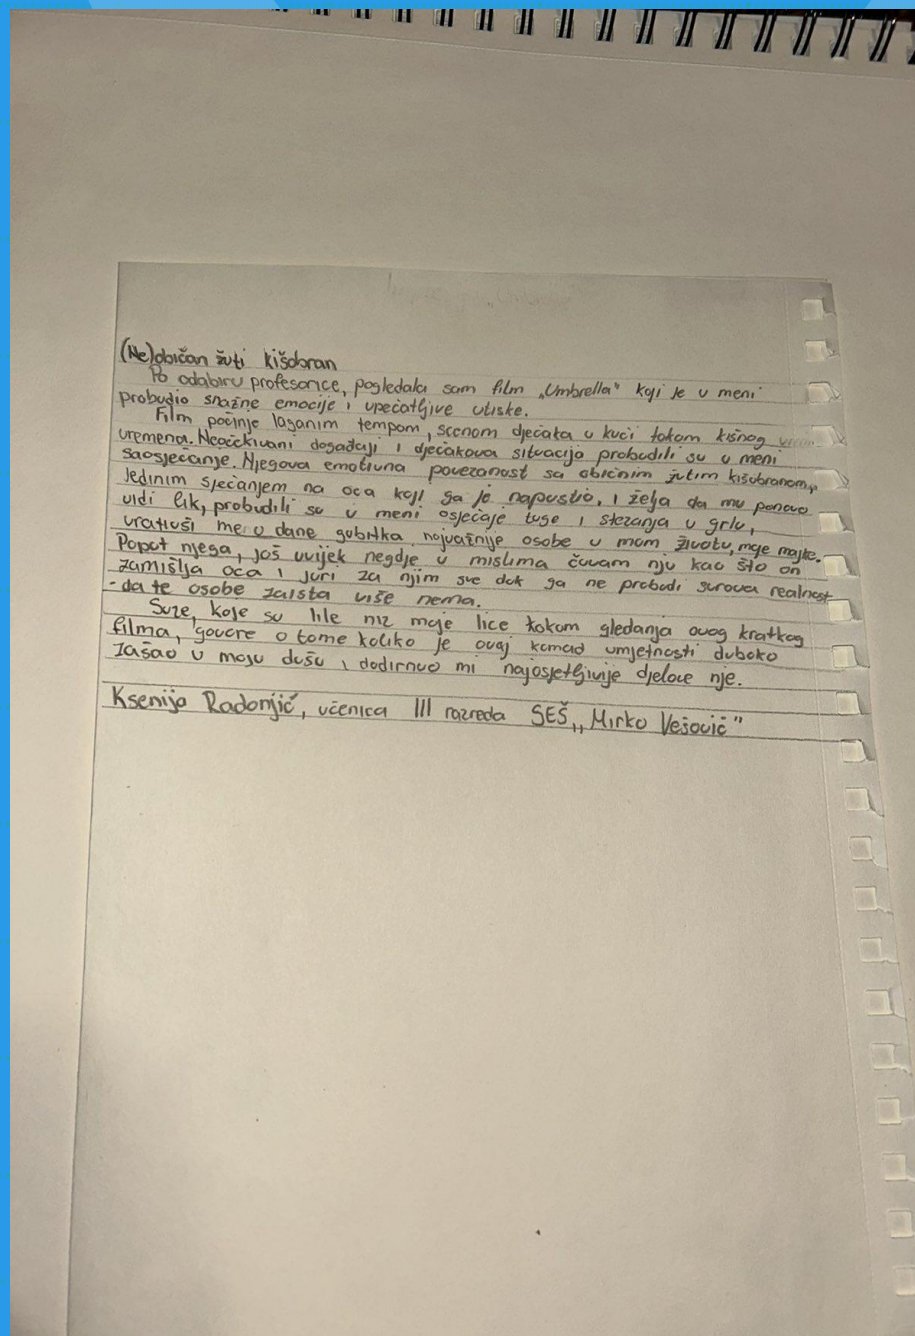 (Ne)običan žuti kišobran
Po odabiru profesorice, pogledala sam film „Umbrella" koji je u meni
probudio snažne emocije i upečatljive utiske.
Film počinje laganim tempom, scenom dječaka u kući tokom kišnog
vremena. Neočekivani događaji i dječakova situacija probudili su u meni
saosjećanje. Njegova emotivna povezanost sa običnim žutim kišobranom,
jedinim sjećanjem na oca koji ga je napustio, i želja da mu ponovo
vidi lik, probudili su u meni osjećaje tuge i stezanja u grlu,
vrativši me u dane gubitka najvažnije osobe u mom životu, moje majke.
Poput njega, još uvijek negdje u mislima čuvam nju kao što on
zamišlja oca i juri za njim sve dok ga ne probudi surova realnost
- da te osobe zaista više nema.
Suze, koje su lile niz moje lice tokom gledanja ovog kratkog
filma, govore o tome koliko je ovaj komad umjetnosti duboko
zašao u moju dušu i dodirnuo mi najosjetljivije djelove nje.
Ksenija Radonjić, učenica III razreda SEŠ „Mirko Vešović"